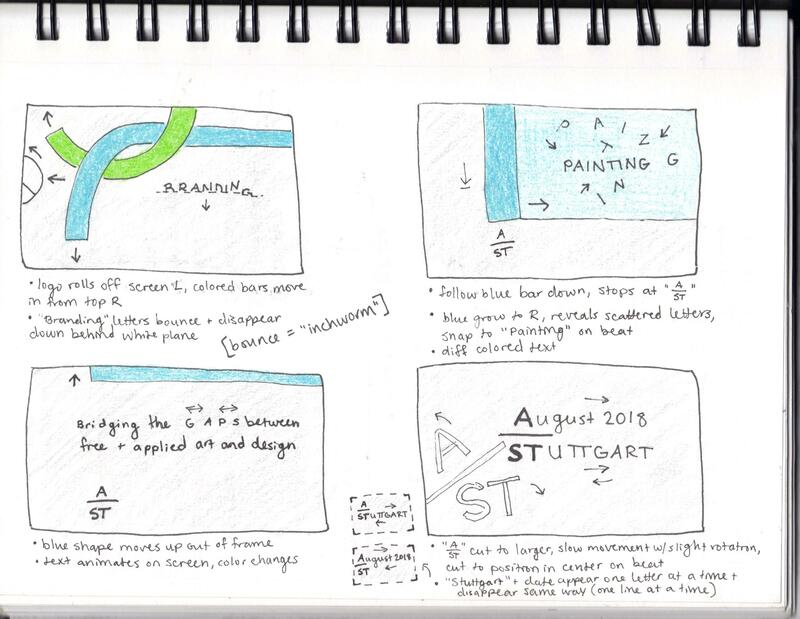 BRANDING
• logo rolls off screen L, colored bars move
in from top R
• "Branding" letters bounce + disappear
down behind white plane
[bounce = "inchworm"]
P A I
T Z
PAINTING G
N
I
A
ST
• follow blue bar down, stops at "A
ST"
• blue grow to R, reveals scattered letters,
snap to "Painting" on beat
• diff colored text
Bridging the GAPS between
free + applied art and design
A
ST
• blue shape moves up out of frame
• text animates on screen, color changes
A
ST
August 2018
STUTTGART
A
STUTTGART
August 2018
ST
• "A
ST" cut to larger, slow movement w/ slight rotation,
cut to position in center on beat
• "Stuttgart" + date appear one letter at a time +
disappear same way (one line at a time)